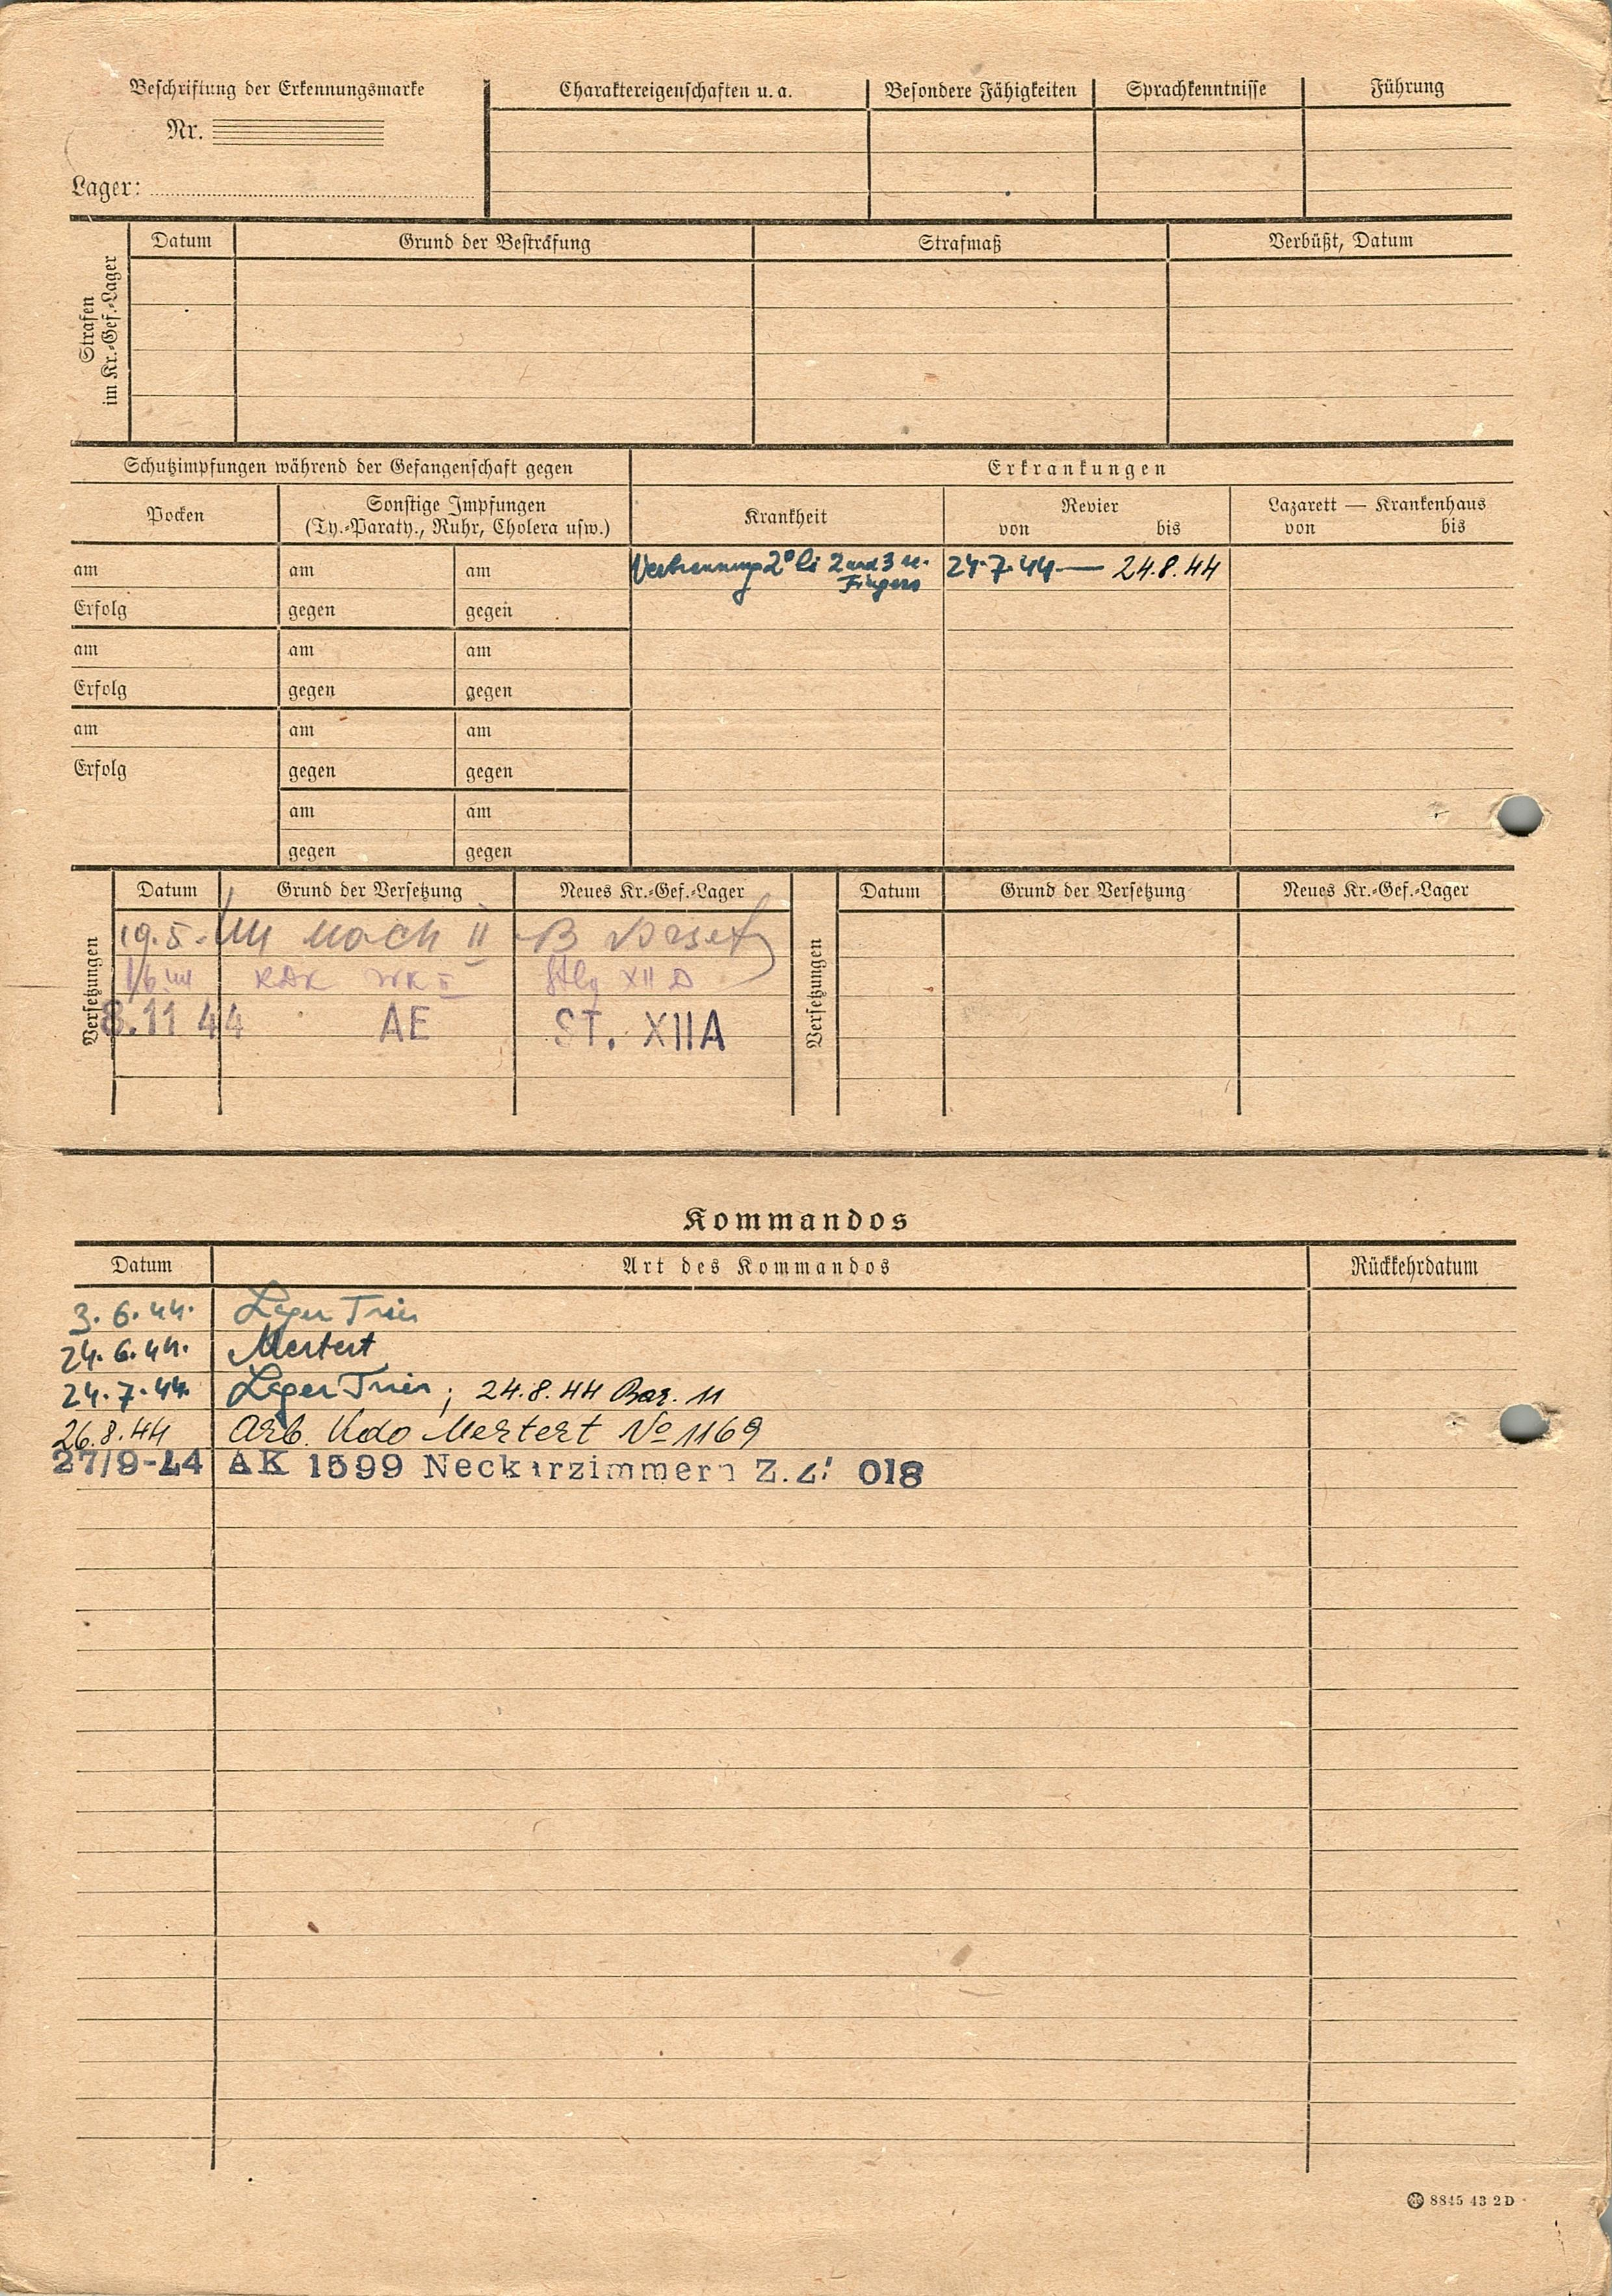 Beschriftung der Erkennungsmarke
Nr.
Lager:
Charaktereigenschaften u. a. Besondere Fähigkeiten Sprachkenntnisse Führung
Strafen im Kr.-Gef.-Lager
Datum Grund der Bestrafung Strafmaß Verbüßt, Datum
Schutzimpfungen während der Gefangenschaft gegen Erkrankungen
Pocken Sonstige Impfungen Krankheit Revier Lazarett — Krankenhaus
(Ty.-Paraty., Ruhr, Cholera usw.) von bis von bis
am am am Verbrennung 2° li 2 und 3 24.7.44 — 24.8.44
Fingers
Erfolg gegen gegen
am am am
Erfolg gegen gegen
am am am
Erfolg gegen gegen
am am
gegen gegen
Versetzungen
Datum Grund der Versetzung Neues Kr.-Gef.-Lager
19.5.44 nach II B versetz
1/6 44 Stlg XII D
8.11 44 AE ST. XIIA
Versetzungen
Datum Grund der Versetzung Neues Kr.-Gef.-Lager
Kommandos
Datum Art des Kommandos Rückkehrdatum
3.6.44. Lager Trier
24.6.44. Mertert
24.7.44. Lager Trier; 24.8.44 Bar. 11
26.8.44 Arb. Kdo Mertert No 1169
27/9-44 AK 1599 Neckarzimmern Z. 018
8845 43 2 D